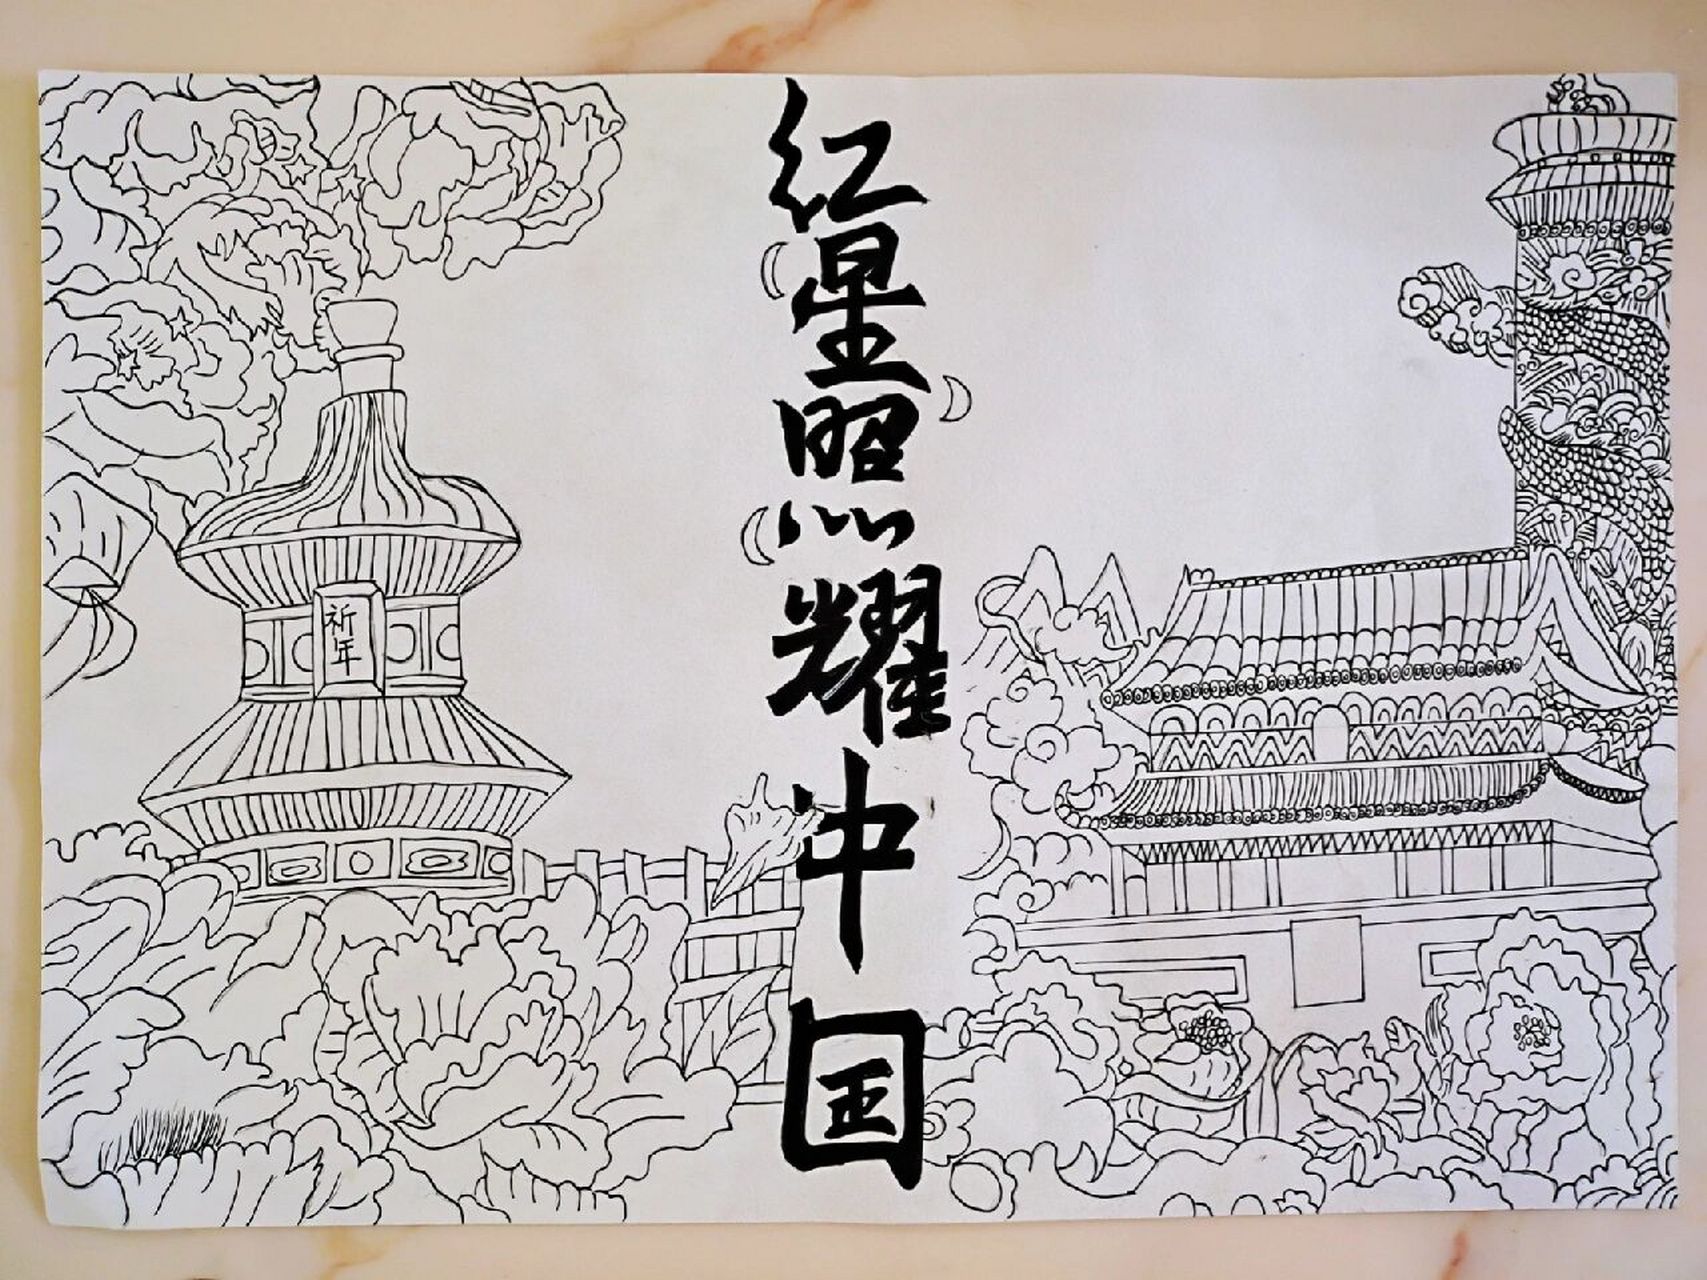 红星照耀中国
祈年